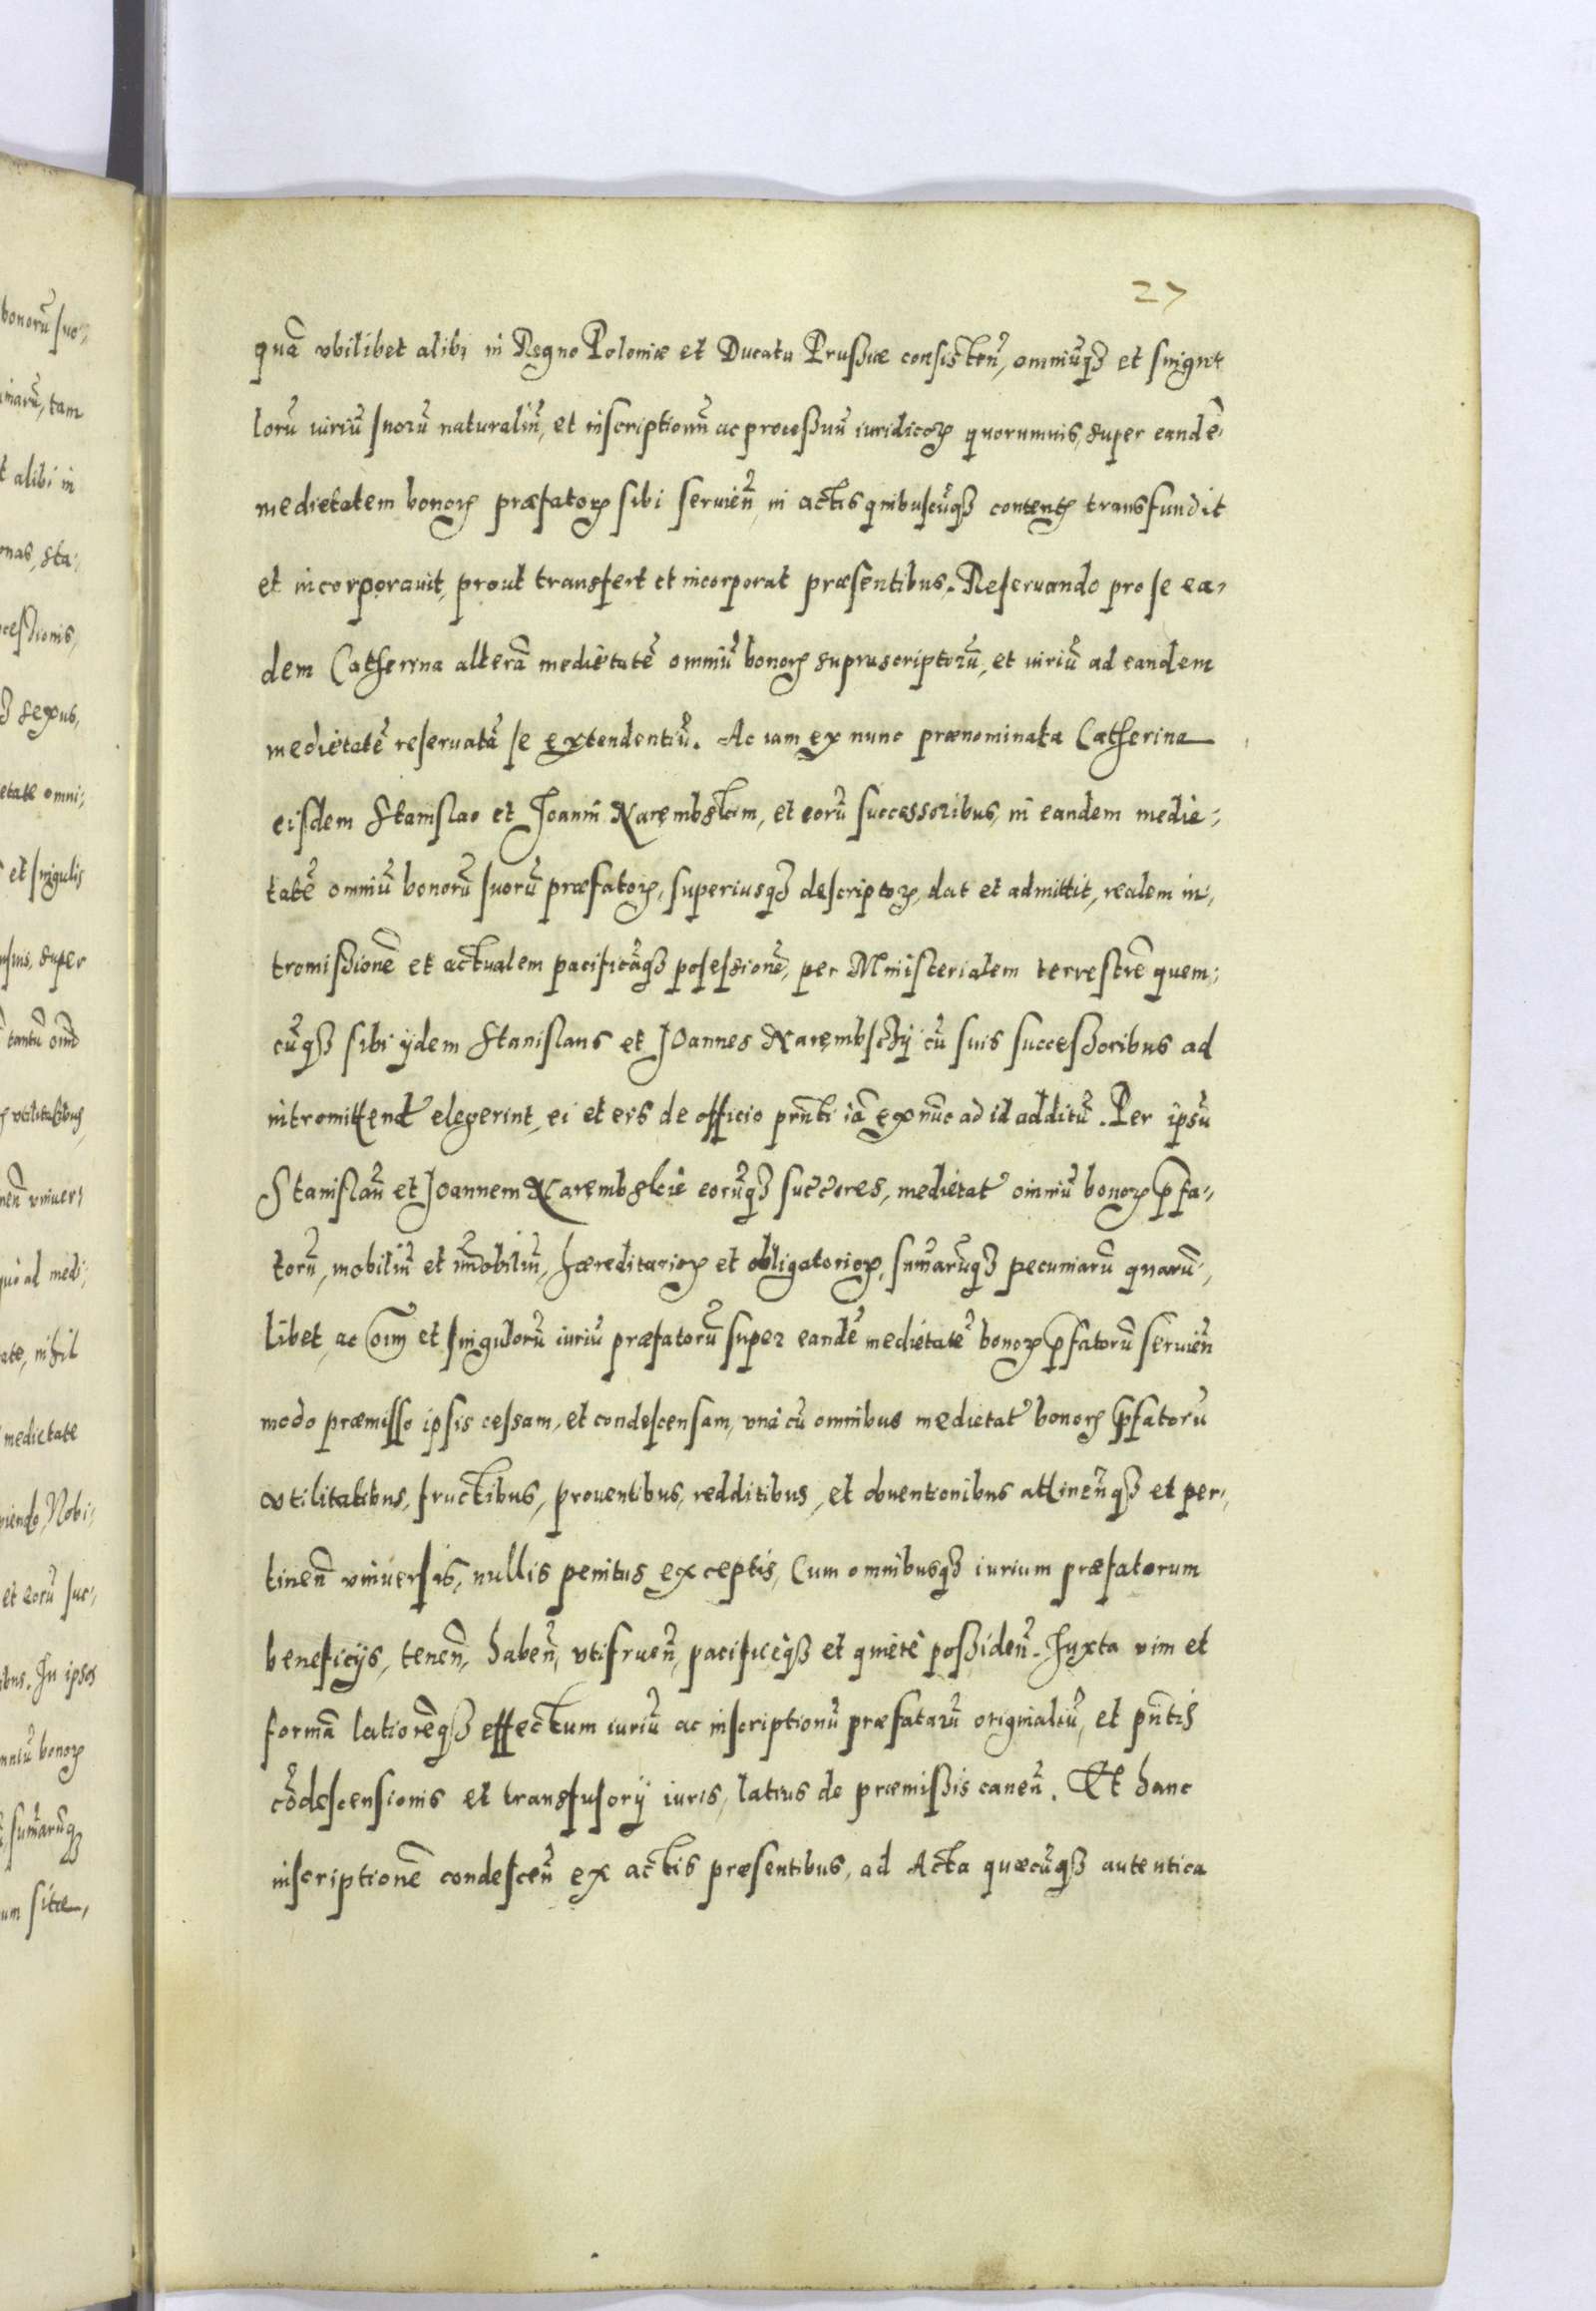 27
quā vbilibet alibi in Regno Poloniæ et Ducatu Prußiæ consisteñ, omniūqꝫ et singu-
lorū iuriū suorū naturaliū, et inscriptionū ac proceßuū iuridicoꝝ quorumuis, super eandē
medietatem bonoꝝ præfatoꝝ sibi seruieñ, in actis quibuscūqꝫ contentꝭ transfundit
et incorporauit, prout transfert et incorporat præsentibus. Reseruando pro se ea-
dem Catherina alterā medietatē omniū bonoꝝ suprascriptorū, et iuriū ad eandem
medietatē reseruatā se extendentiū. Ac iam ex nunc prænominata Catherina
eisdem Stanislao et Joanni Xarembskim, et eorū successoribus, in eandem medie-
tatē omniū bonorū suorū præfatoꝝ, superiusqꝫ descriptoꝝ, dat et admittit, realem in-
tromißionē et actualem pacificāqꝫ possessionē, per Ministerialem terrestrē quem-
cūqꝫ sibi ijdem Stanislaus et Joannes Xarembschij cū suis succeßoribus ad
intromittend elegerint, ei et eis de officio prnti iā ex nūc ad id additū. Per ipsū
Stanislaū et Joannem Xarembskie eorūqꝫ succores, medietat omniū bonoꝝ pfa-
torū, mobiliū et im̄obiliū, hæreditarioꝝ et obligatorioꝝ, sum̄arūqꝫ pecuniarū quarū-
libet, ac oīm et singulorū iuriū præfatorū super eandē medietatē bonoꝝ pfatorū seruieñ
modo præmisso ipsis cessam, et condescensam, unā cū omnibus medietat bonoꝝ pfatorū
vtilitatibus, fructibus, prouentibus, redditibus, et obuentionibus attineñqꝫ et per-
tineñ vniuersis, nullis penitus exceptis, Cum omnibusqꝫ iurium præfatorum
beneficijs, teneñ, habeñ, vtifrueñ, pacificèqꝫ et quietè poßideñ. Juxta vim et
formā latiorēqꝫ effectum iuriū ac inscriptionū præfatarū originaliū, et pñtis
cōdescensionis et transfusorij iuris, latius de præmißis caneñ. Et hanc
inscriptionē condesceñ ex actis præsentibus, ad Acta quæcūqꝫ autentica